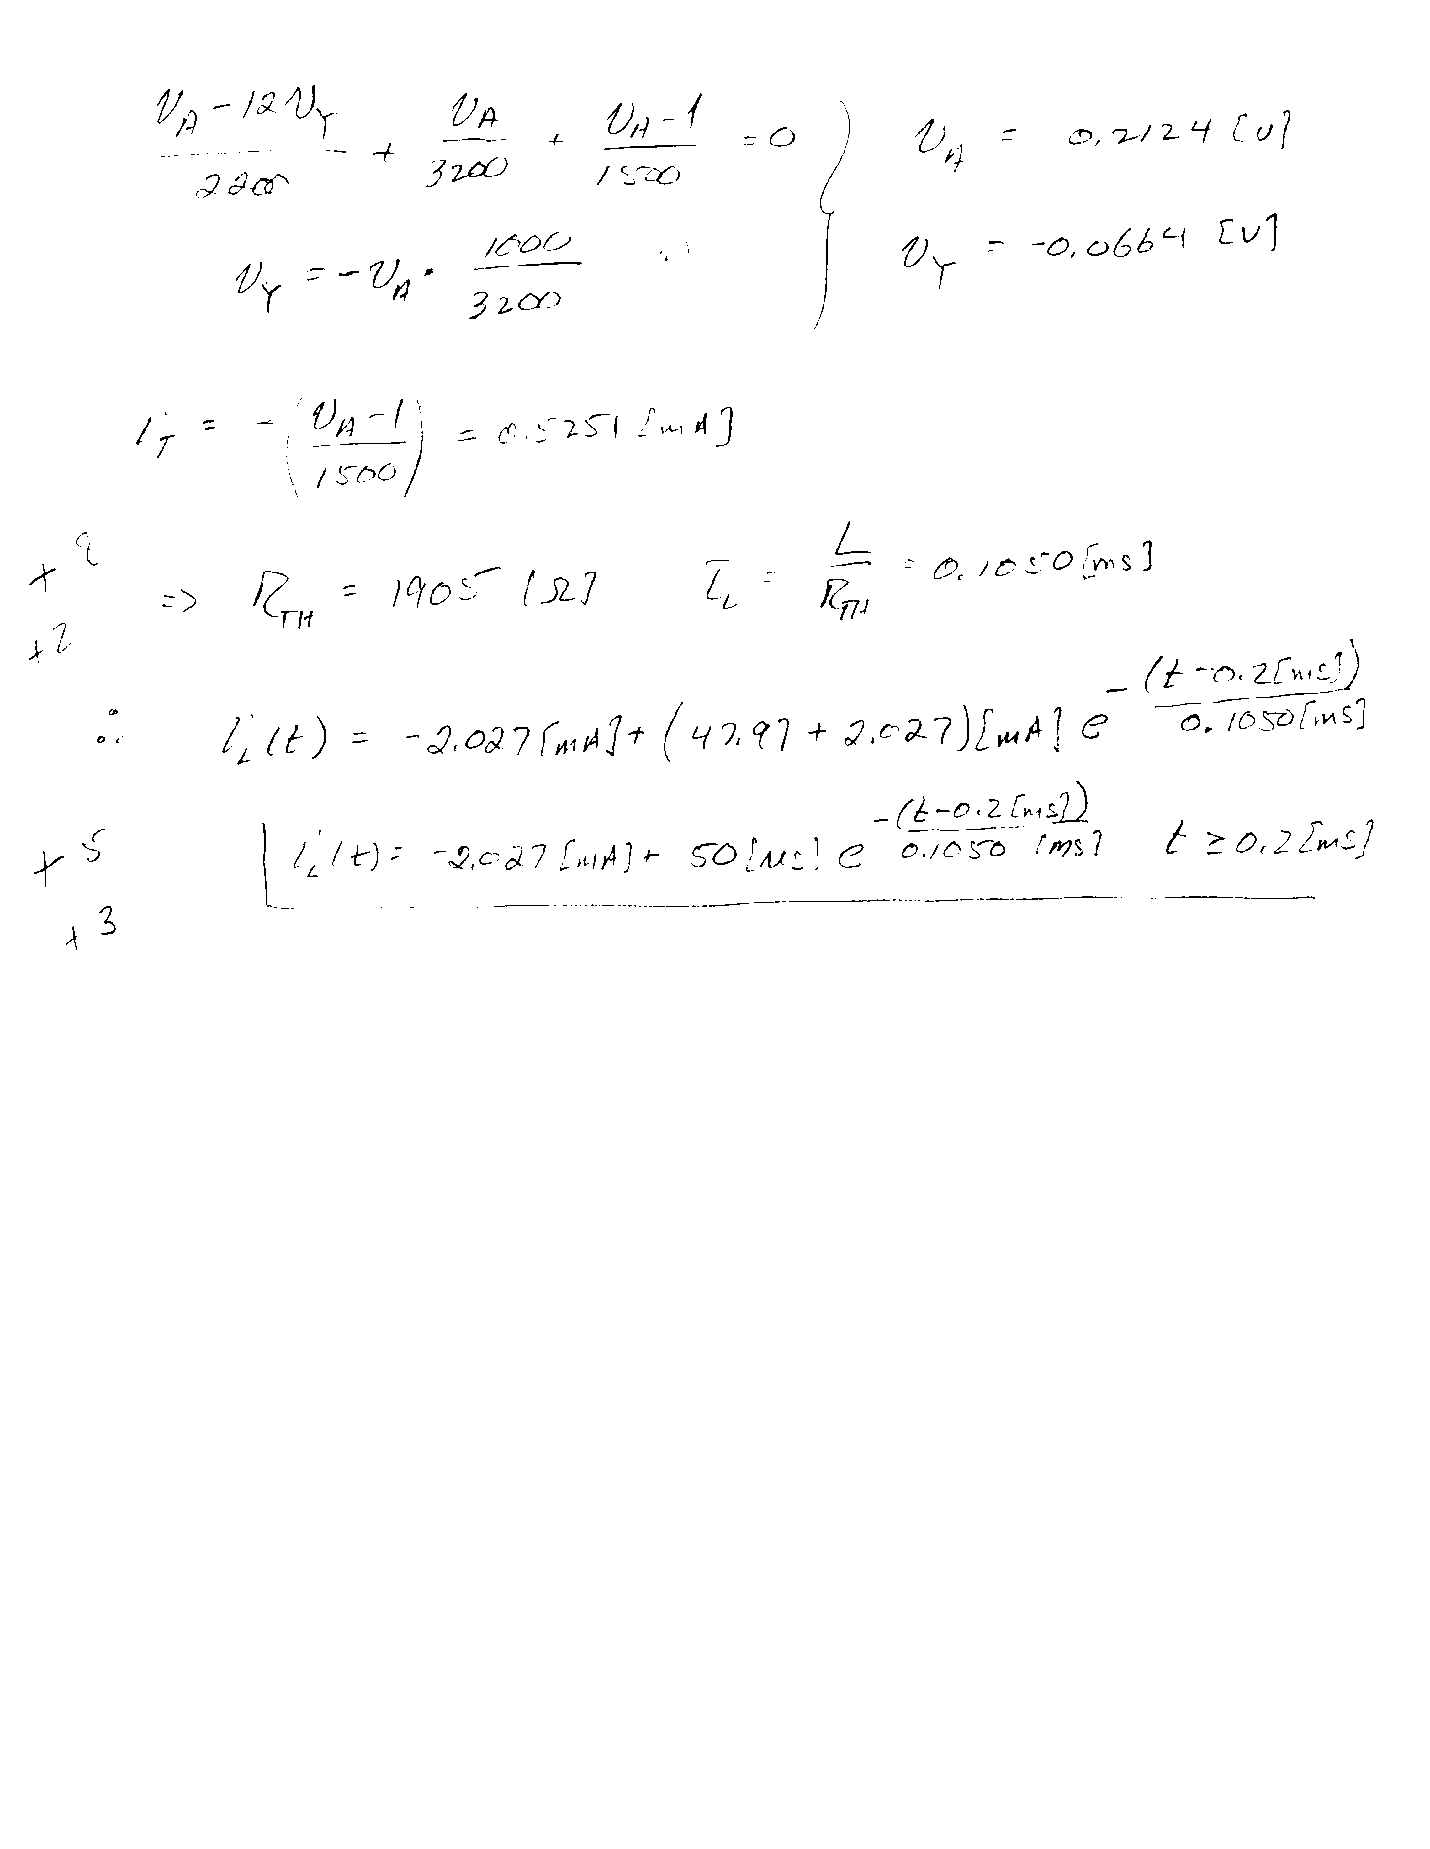 (v_A - 12 v_Y)/2200 + v_A/3200 + (v_A - 1)/1500 = 0 } v_A = 0.2124 [V]
v_Y = -v_A · 1000/3200 v_Y = -0.0664 [V]
i_T = -((v_A - 1)/1500) = 0.5251 [mA]
+2
=> R_TH = 1905 [Ω] τ_L = L/R_TH = 0.1050 [ms]
+2
∴ i_L(t) = -2.027 [mA] + (47.97 + 2.027) [mA] e^(-(t - 0.2 [ms])/0.1050 [ms])
+5 i_L(t) = -2.027 [mA] + 50 e^(-(t - 0.2 [ms])/0.1050 [ms]) t ≥ 0.2 [ms]
+3